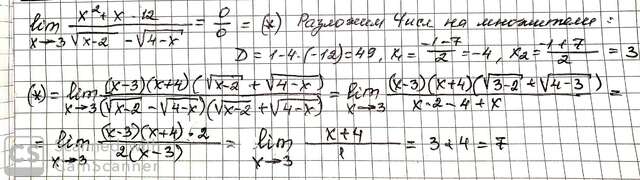 lim x→3 (x²+x-12)/(√(x-2) - √(4-x)) = 0/0 = (*) Разложим числ на множители:
D = 1-4·(-12)=49, x₁ = (-1-7)/2 = -4, x₂ = (-1+7)/2 = 3
(*) = lim x→3 ((x-3)(x+4)(√(x-2) + √(4-x)))/((√(x-2) - √(4-x))(√(x-2) + √(4-x))) = lim x→3 ((x-3)(x+4)(√(3-2) + √(4-3)))/(x-2-4+x) =
= lim x→3 ((x-3)(x+4)·2)/(2(x-3)) = lim x→3 (x+4)/1 = 3+4 = 7
CS
CamScanner